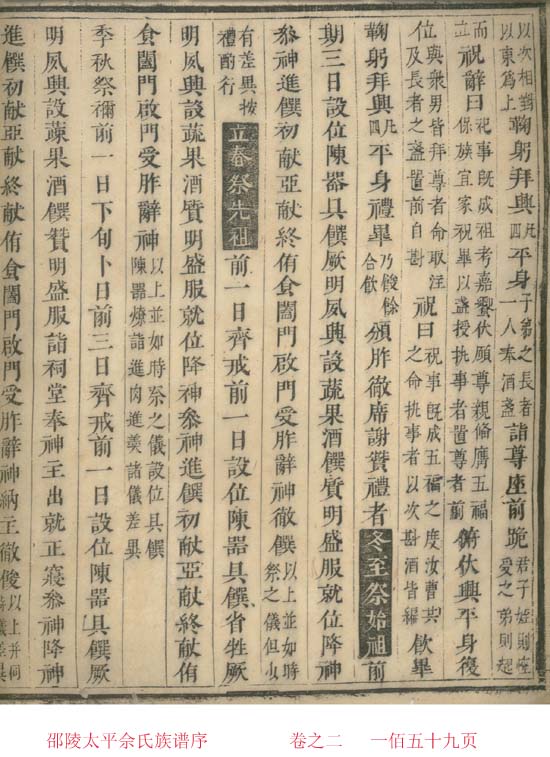 以次相對以東爲上鞠躬拜興凡四平身子弟之長者一人奉酒盞詣尊座前跪君子姪則座受之弟則起
而立祝辭曰祀事既成祖考嘉饗伏願尊親偹膺五福保族宜家祝畢以盞授执事者置尊者前俯伏興平身復
位與衆男皆拜尊者命取注及長者之盞置前自斟祝曰祝事既成五福之度汝曹共之命执事者以次斟酒皆徧飲畢
鞠躬拜興凡四平身禮畢乃餕餘合飲頒胙徹席謝贊禮者冬至祭始祖前
期三日設位陳器具饌厥明夙興設蔬果酒饌質明盛服就位降神
叅神進饌初献亞献終献侑食闔門啟門受胙辭神徹饌以上並如時祭之儀但少
有差異按禮酌行立春祭先祖前一日齊戒前一日設位陳器具饌省牲厥
明夙興設蔬果酒質明盛服就位降神叅神進饌初献亞献終献侑
食闔門啟門受胙辭神以上並如時祭之儀設位具饌陳器燎詣進肉進羮諸儀差異
季秋祭禰前一日下旬卜日前三日齊戒前一日設位陳器具饌厥
明夙興設蔬果酒饌贊明盛服詣祠堂奉神主出就正寢叅神降神
進饌初献亞献終献侑食闔門啟門受胙辭神納主徹餕以上并祠儀差異
邵陵太平余氏族谱序 卷之二 一佰五十九页